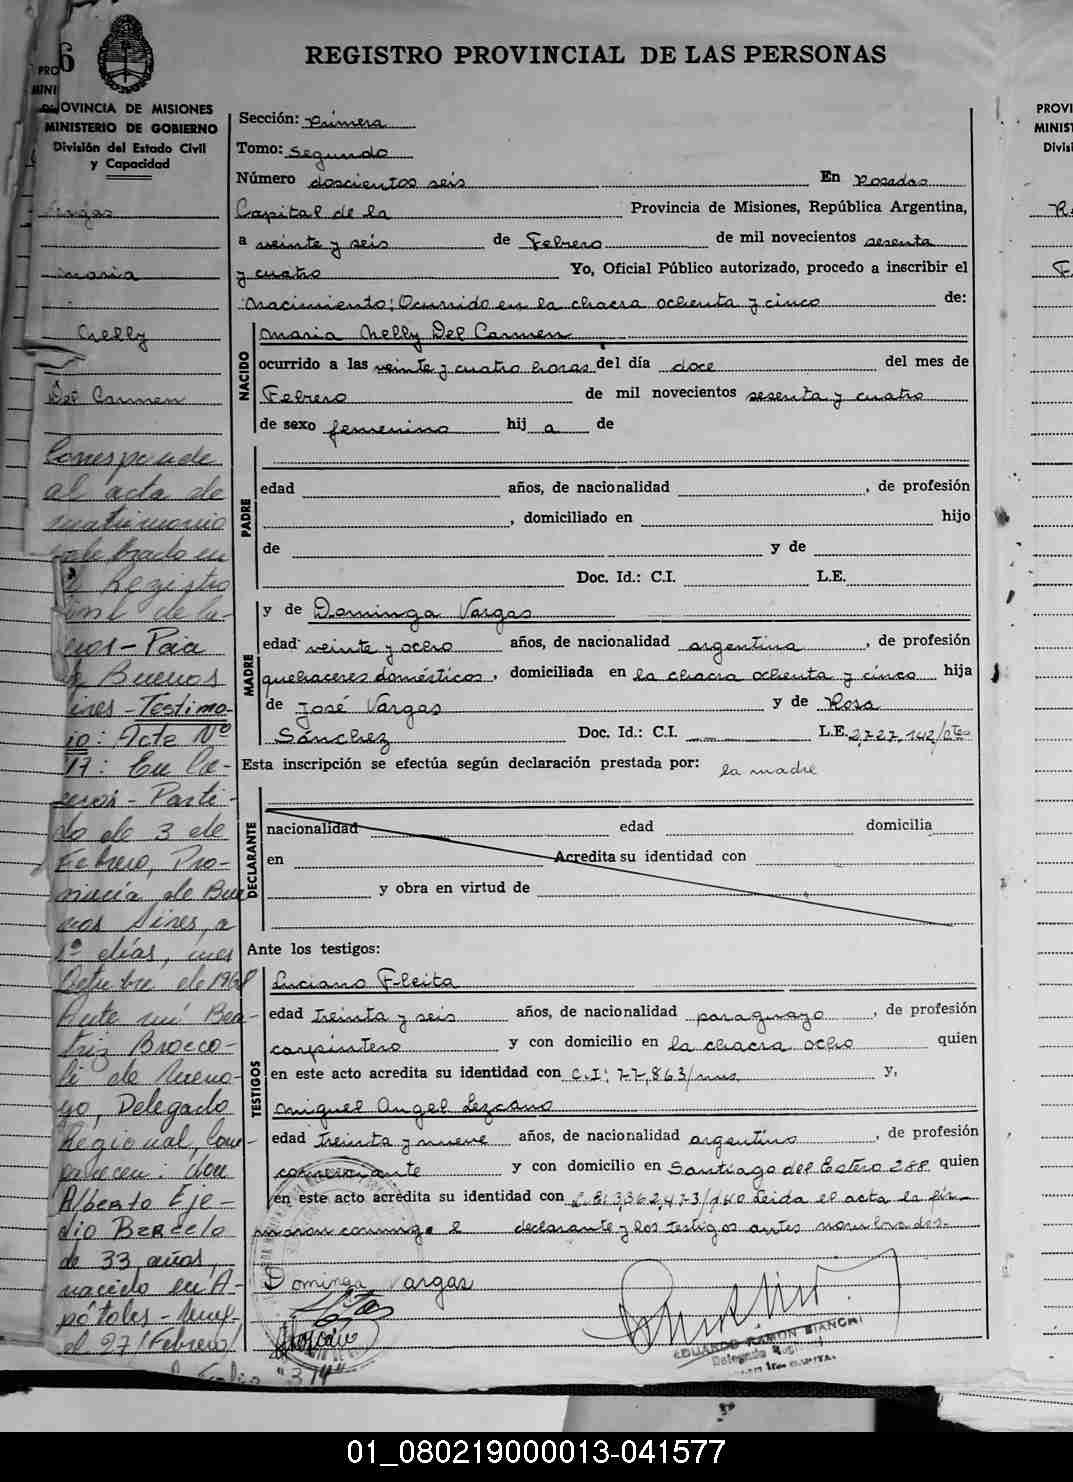 6
REGISTRO PROVINCIAL DE LAS PERSONAS
PRO
MINI
PROVINCIA DE MISIONES
MINISTERIO DE GOBIERNO
División del Estado Civil
y Capacidad
Vargas
Maria
Nelly
Del Carmen
Corresponde
al acta de
matrimonio
celebrado en
el Registro
Civil de
Pcia
de Buenos
Aires - Testimo-
nio: Acta Nº
17: En Ca-
seros - Parti-
do de 3 de
Febrero, Pro-
vincia de Bue
nos Aires, a
1º días, mes
Octubre de 1968
Ante mí Bea-
triz Brocco-
li de
Delegado
Regional, Com-
parecen: don
Alberto Eje-
dio Barcelo
de 33 años,
nacido en A-
póstoles -
el 27/Febrero
Folio "374"
Sección: Primera
Tomo: Segundo
Número doscientos seis En Posadas
Capital de la Provincia de Misiones, República Argentina,
a veinte y seis de Febrero de mil novecientos sesenta
y cuatro Yo, Oficial Público autorizado, procedo a inscribir el
Nacimiento; Ocurrido en la chacra ochenta y cinco de:
NACIDO
Maria Nelly Del Carmen
ocurrido a las veinte y cuatro horas del día doce del mes de
Febrero de mil novecientos sesenta y cuatro
de sexo femenino hij a de
PADRE
edad años, de nacionalidad , de profesión
, domiciliado en hijo
de y de
Doc. Id.: C.I. L.E.
MADRE
y de Dominga Vargas
edad veinte y ocho años, de nacionalidad argentina , de profesión
quehaceres domésticos, domiciliada en la chacra ochenta y cinco hija
de José Vargas y de Rosa
Sánchez Doc. Id.: C.I. L.E. 2,727,142/
Esta inscripción se efectúa según declaración prestada por: la madre
DECLARANTE
nacionalidad edad domicilia
en Acredita su identidad con
y obra en virtud de
Ante los testigos:
TESTIGOS
Luciano Fleita
edad treinta y seis años, de nacionalidad paraguayo , de profesión
carpintero y con domicilio en la chacra ocho quien
en este acto acredita su identidad con C.I: 77,863/mns. y,
Miguel Angel Lezcano
edad treinta y nueve años, de nacionalidad argentino , de profesión
comerciante y con domicilio en Santiago del Estero 288 quien
en este acto acredita su identidad con L.E: 3,362,473/ Leida el acta la fir-
maron conmigo el declarante y los testigos antes nombrados.-
Dominga Vargas
EDUARDO RAMON BIANCHI
PROVI
MINIST
Divisi
01_080219000013-041577